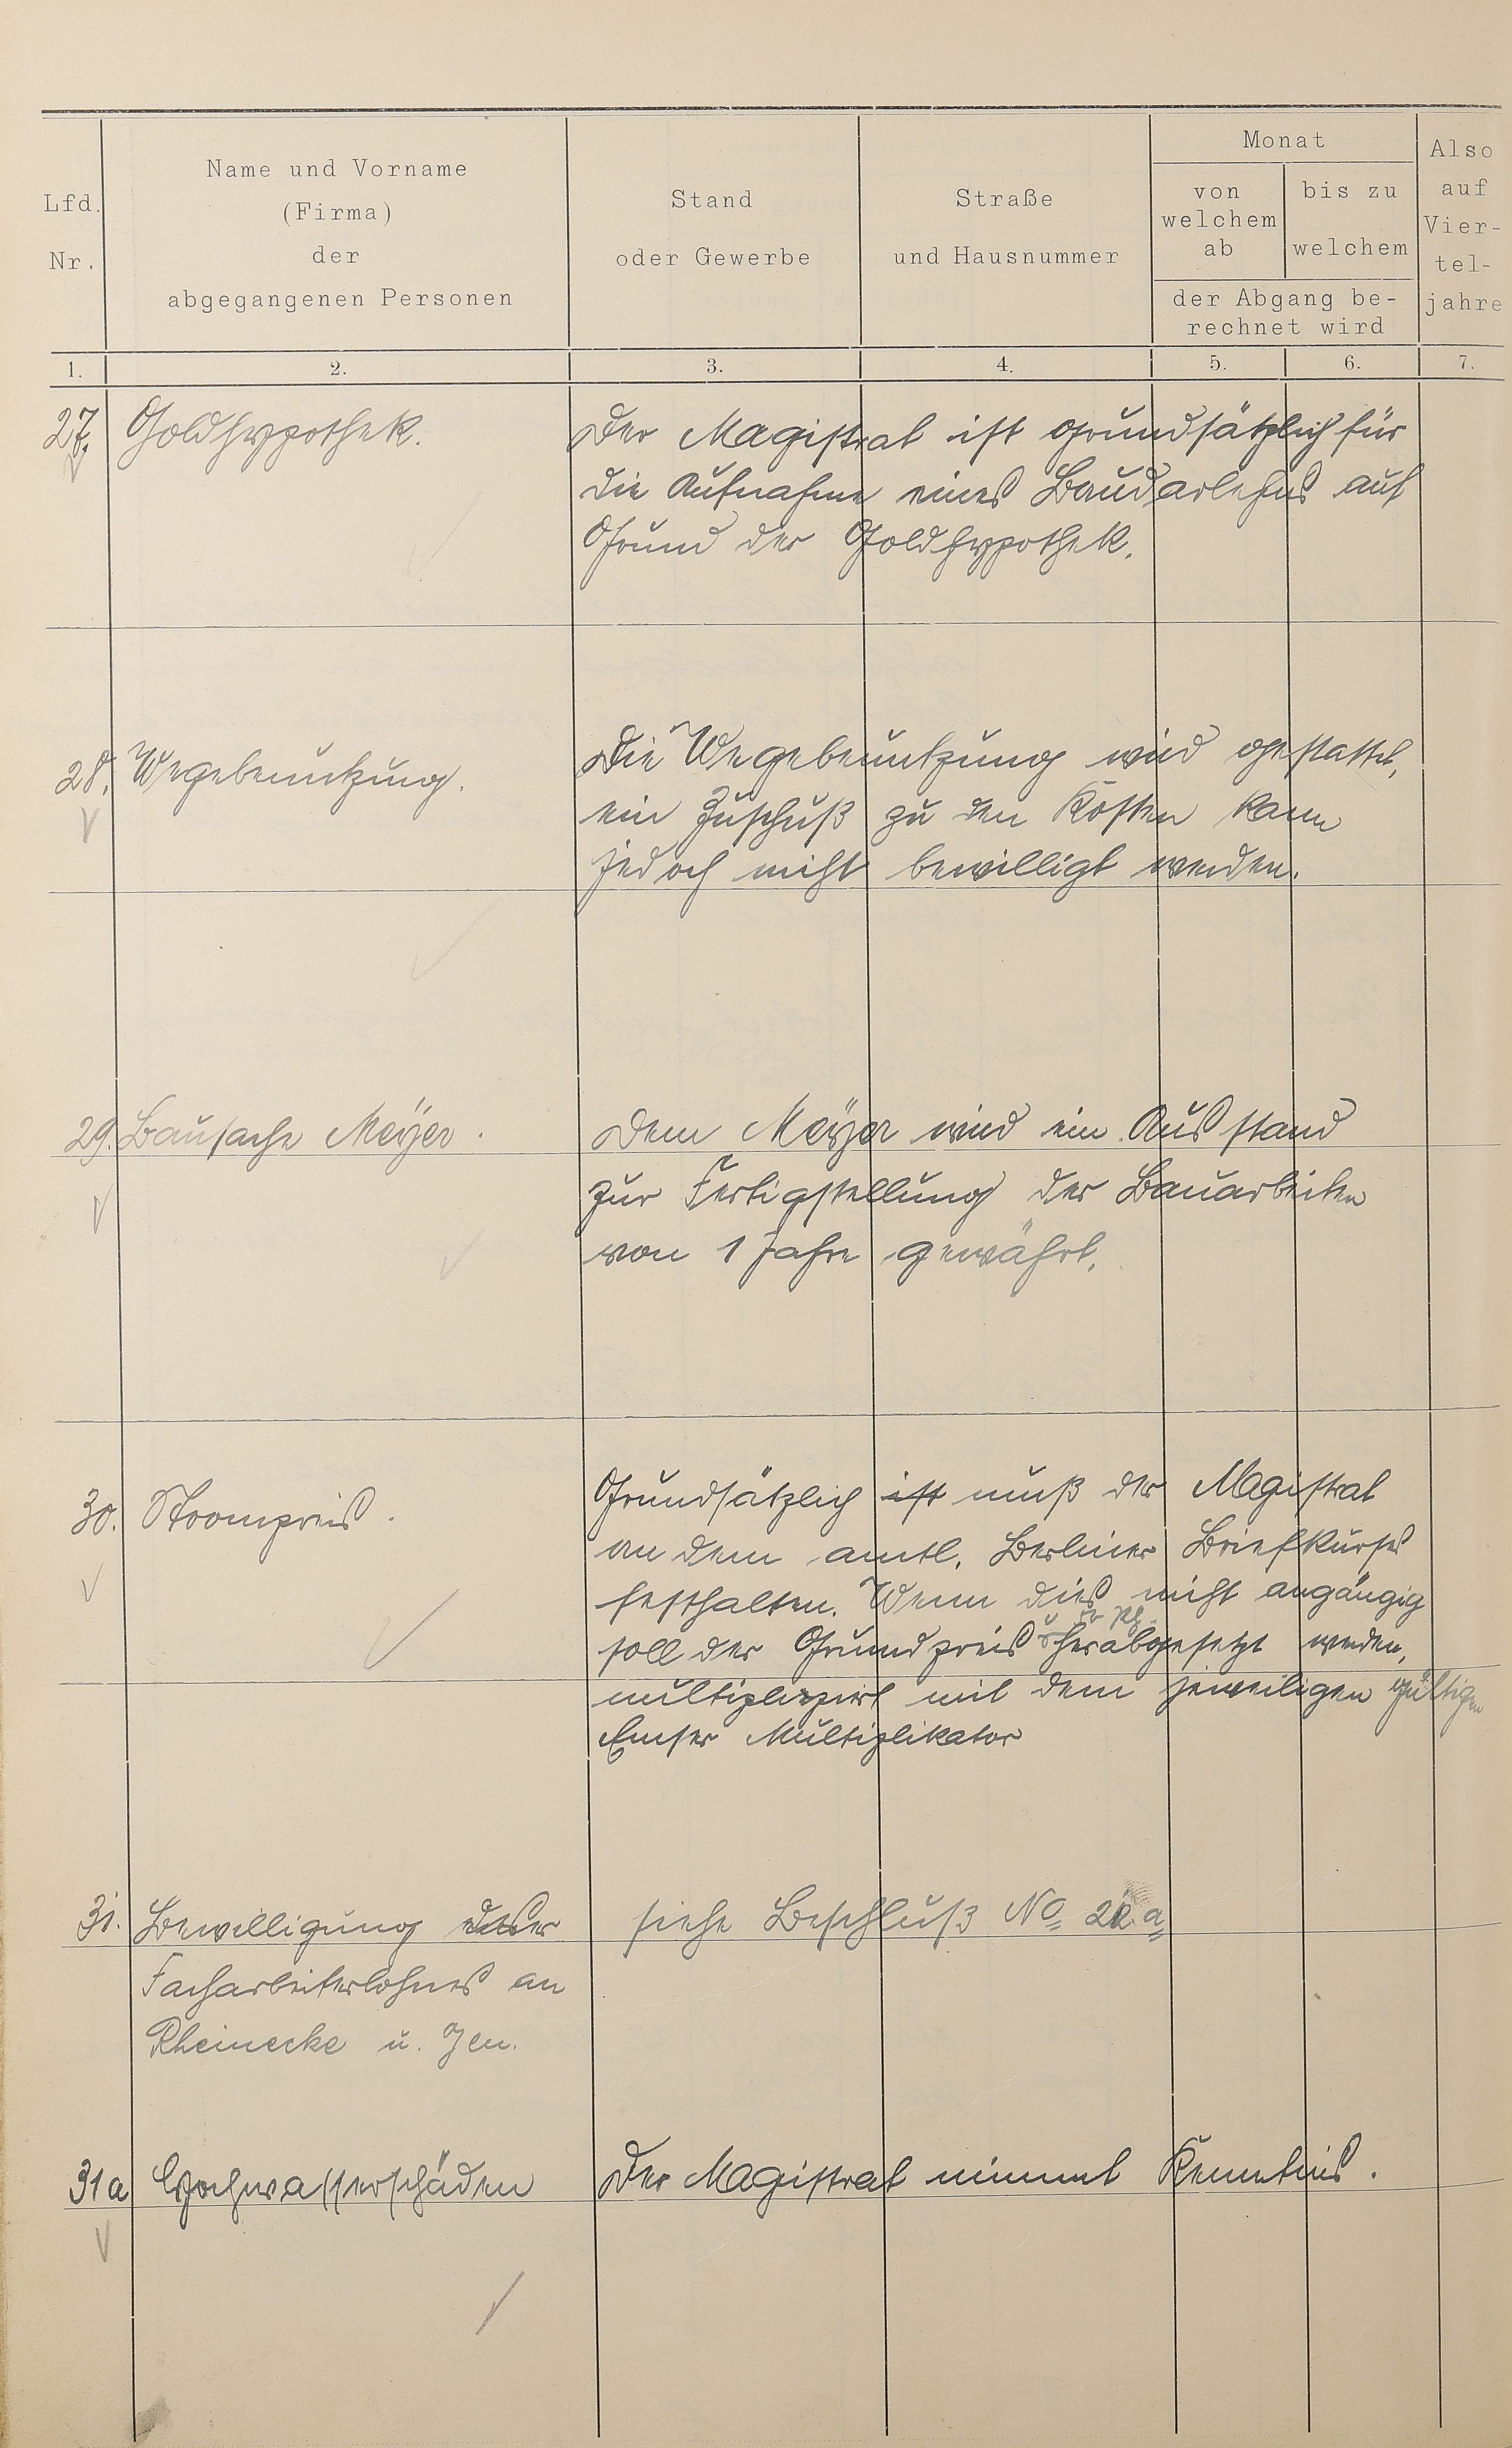 Lfd. Nr.
Name und Vorname
(Firma)
der
abgegangenen Personen
Stand
oder Gewerbe
Straße
und Hausnummer
Monat
von
welchem
ab
bis zu
welchem
der Abgang be-
rechnet wird
Also
auf
Vier-
tel-
jahre
1. 2. 3. 4. 5. 6. 7.
27. Goldhypothek.
Der Magistrat ist grundsätzlich für
die Aufnahme eines Baudarlehns auf
Grund der Goldhypothek.
28. Wegebenutzung.
Die Wegebenutzung wird gestattet,
ein Zuschuß zu den Kosten kann
jedoch nicht bewilligt werden.
29. Bausache Meyer.
Dem Meyer wird ein Ausstand
zur Fertigstellung der Bauarbeiten
von 1 Jahre gewährt.
30. Strompreis.
Grundsätzlich ist muß der Magistrat
an dem amtl. Berliner Briefkurse
festhalten. Wenn dies nicht angängig
soll der Grundpreis herabgesetzt werden,
multipliziert mit dem jeweiligen gültigen
Emser Multiplikator
31. Bewilligung
Facharbeiterlohnes an
Rheinecke u. Gen.
siehe Beschluß No 22 a
31a Hochwasserschäden
Der Magistrat nimmt Kenntnis.